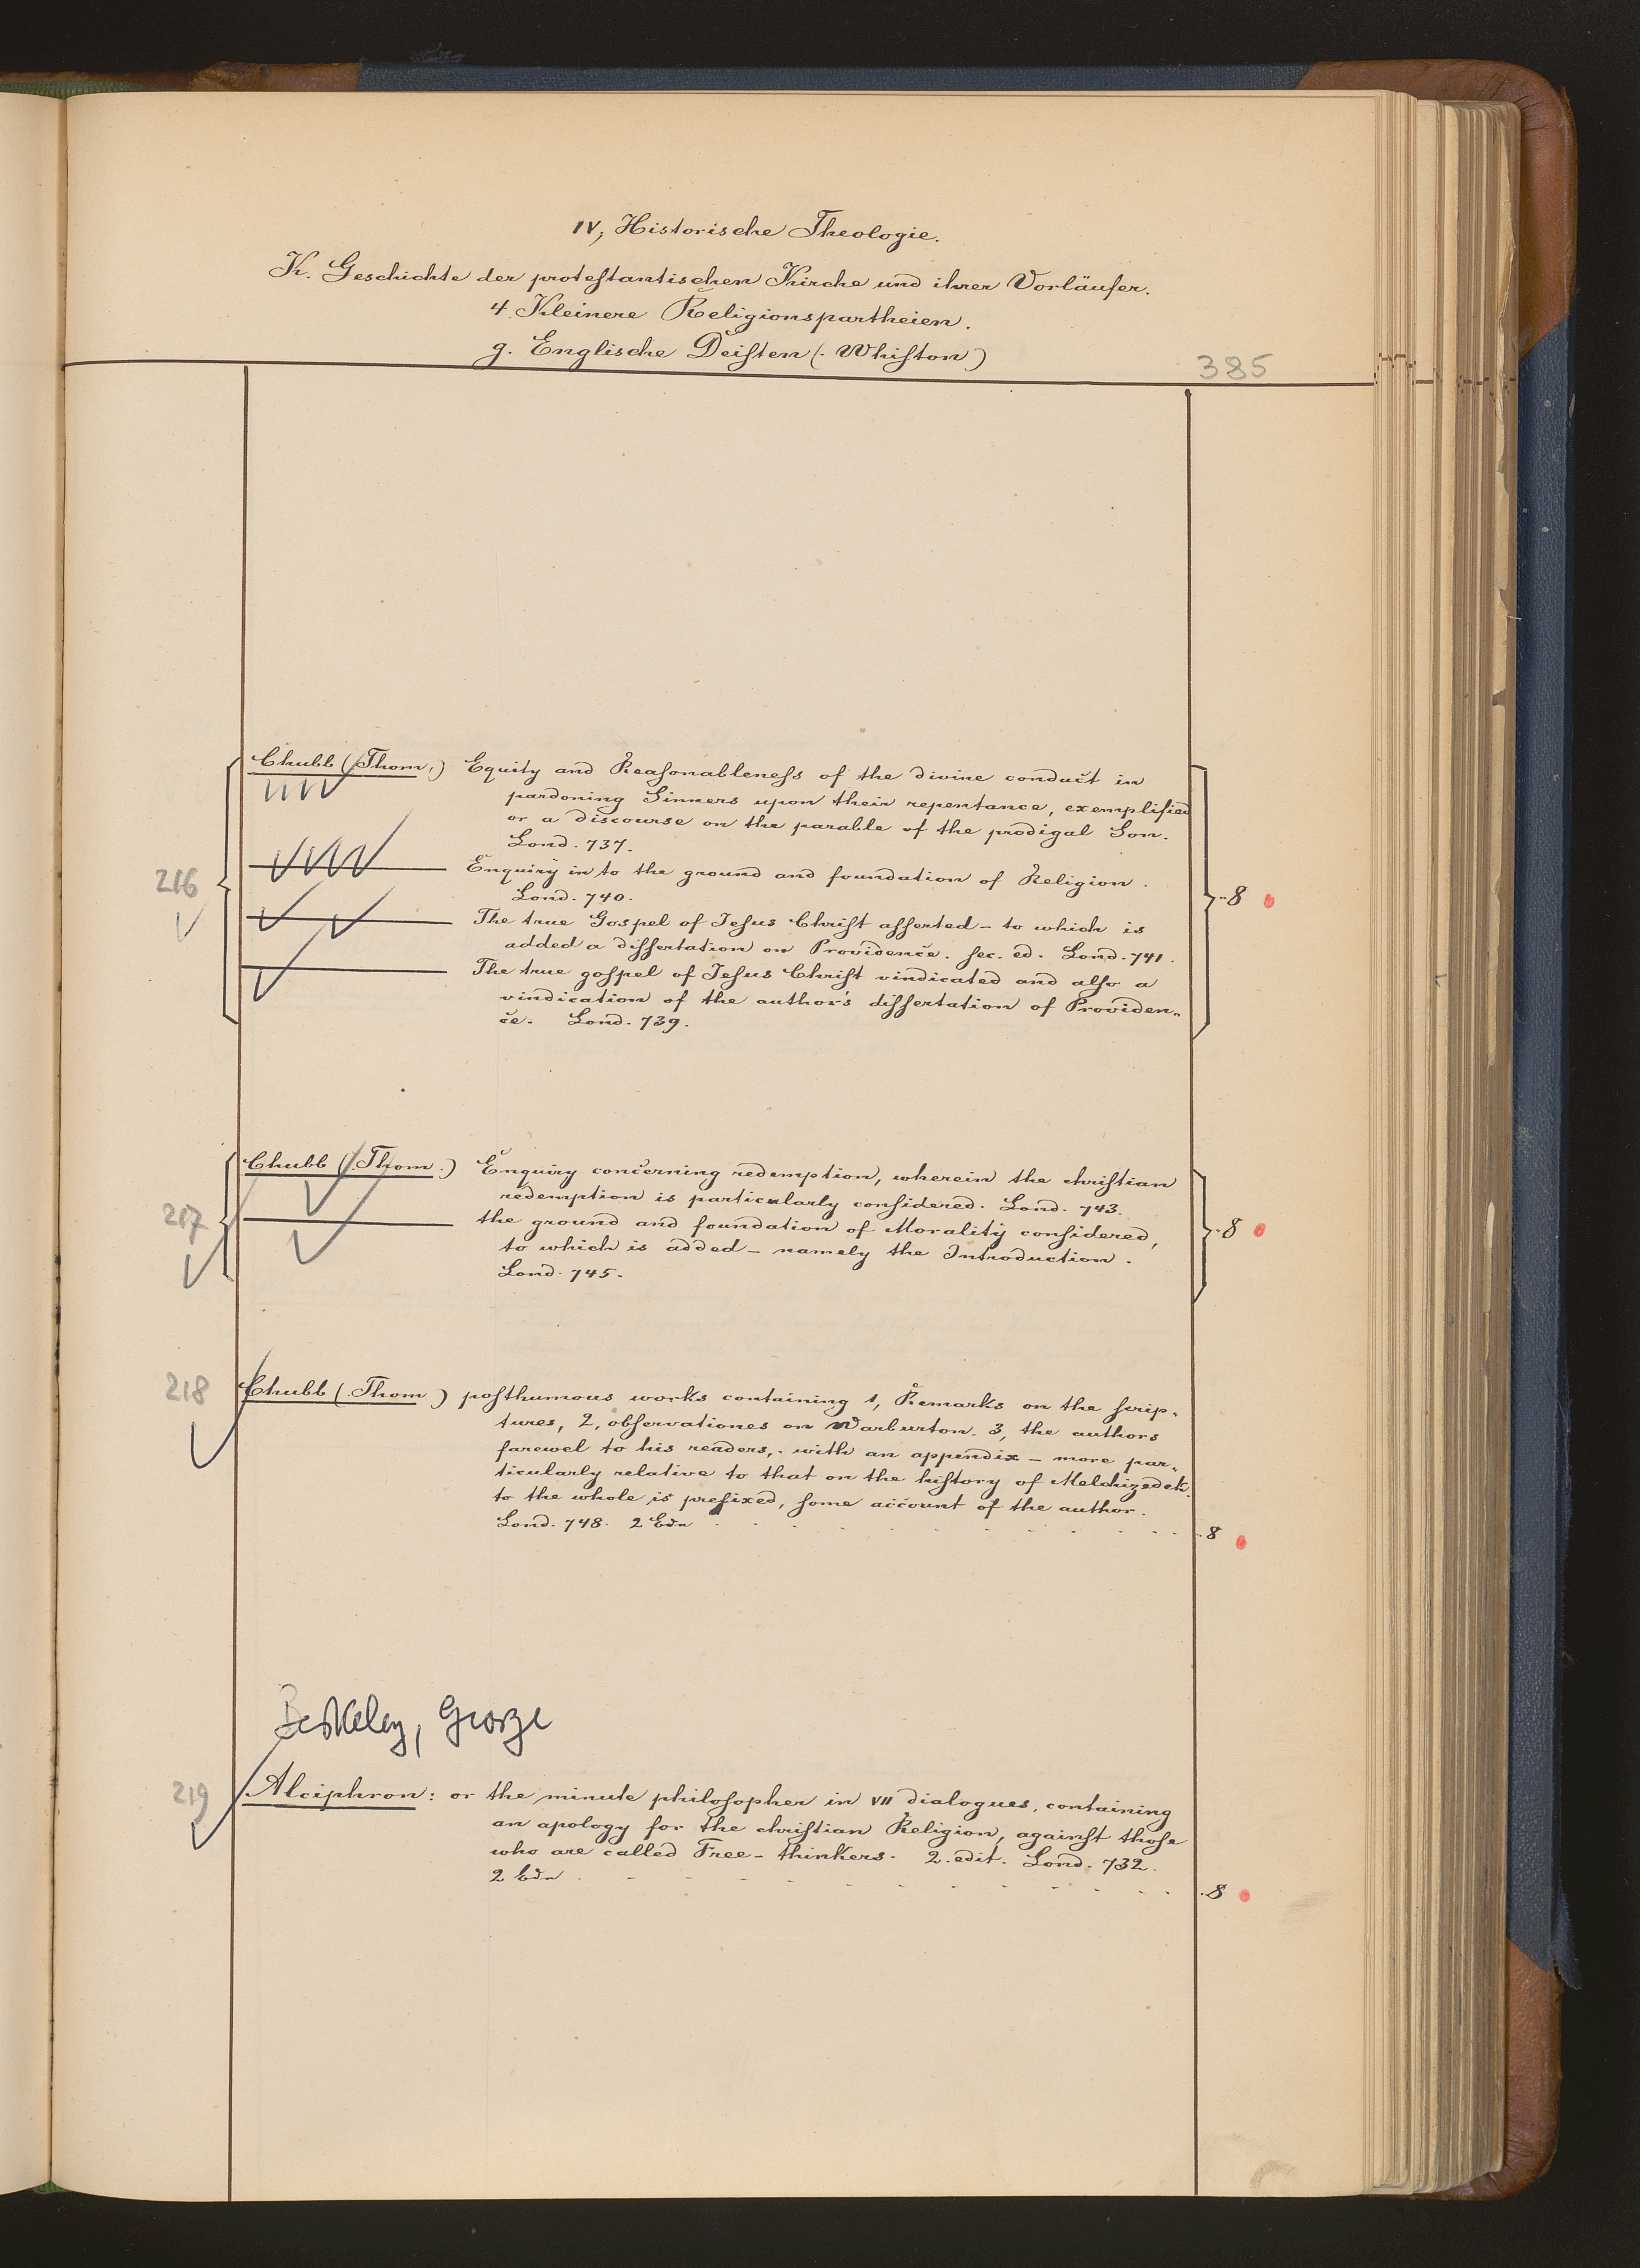 IV, Historische Theologie.
K. Geschichte der protestantischen Kirche und ihrer Vorläufer.
4. Kleinere Religionspartheien.
g. Englische Deisten (. Whiston)
385
216
Chubb (Thom.) Equity and Reasonableness of the divine conduct in
pardoning Sinners upon their repentance, exemplified
or a discourse on the parable of the prodigal Son.
Lond. 737.
Enquiry in to the ground and foundation of Religion.
Lond. 740.
8
The true Gospel of Jesus Christ asserted - to which is
added a dissertation on Providence. sec. ed. Lond. 741.
The true gospel of Jesus Christ vindicated and also a
vindication of the author's dissertation of Providen„
ce. Lond. 739.
217
Chubb (. Thom.) Enquiry concerning redemption, wherein the christian
redemption is particularly considered. Lond. 743.
the ground and foundation of Morality considered,
8
to which is added - namely the Introduction.
Lond. 745.
218
Chubb (. Thom ) posthumous works containing 1, Remarks on the scrip„
tures, 2, observationes on Warburton. 3, the authors
farewel to his readers,. with an appendix - more par„
ticularly relative to that on the history of Melchizedek.
to the whole is prefixed, some account of the author.
Lond. 748. 2 Bdn . . . . . . . . . . . . 8
Berkeley, George
219
Alciphron: or the minute philosopher in VII dialogues, containing
an apology for the christian Religion, against those
who are called Free-thinkers. 2. edit. Lond. 732.
2 Bdn . . . . . . . . . . . . . 8